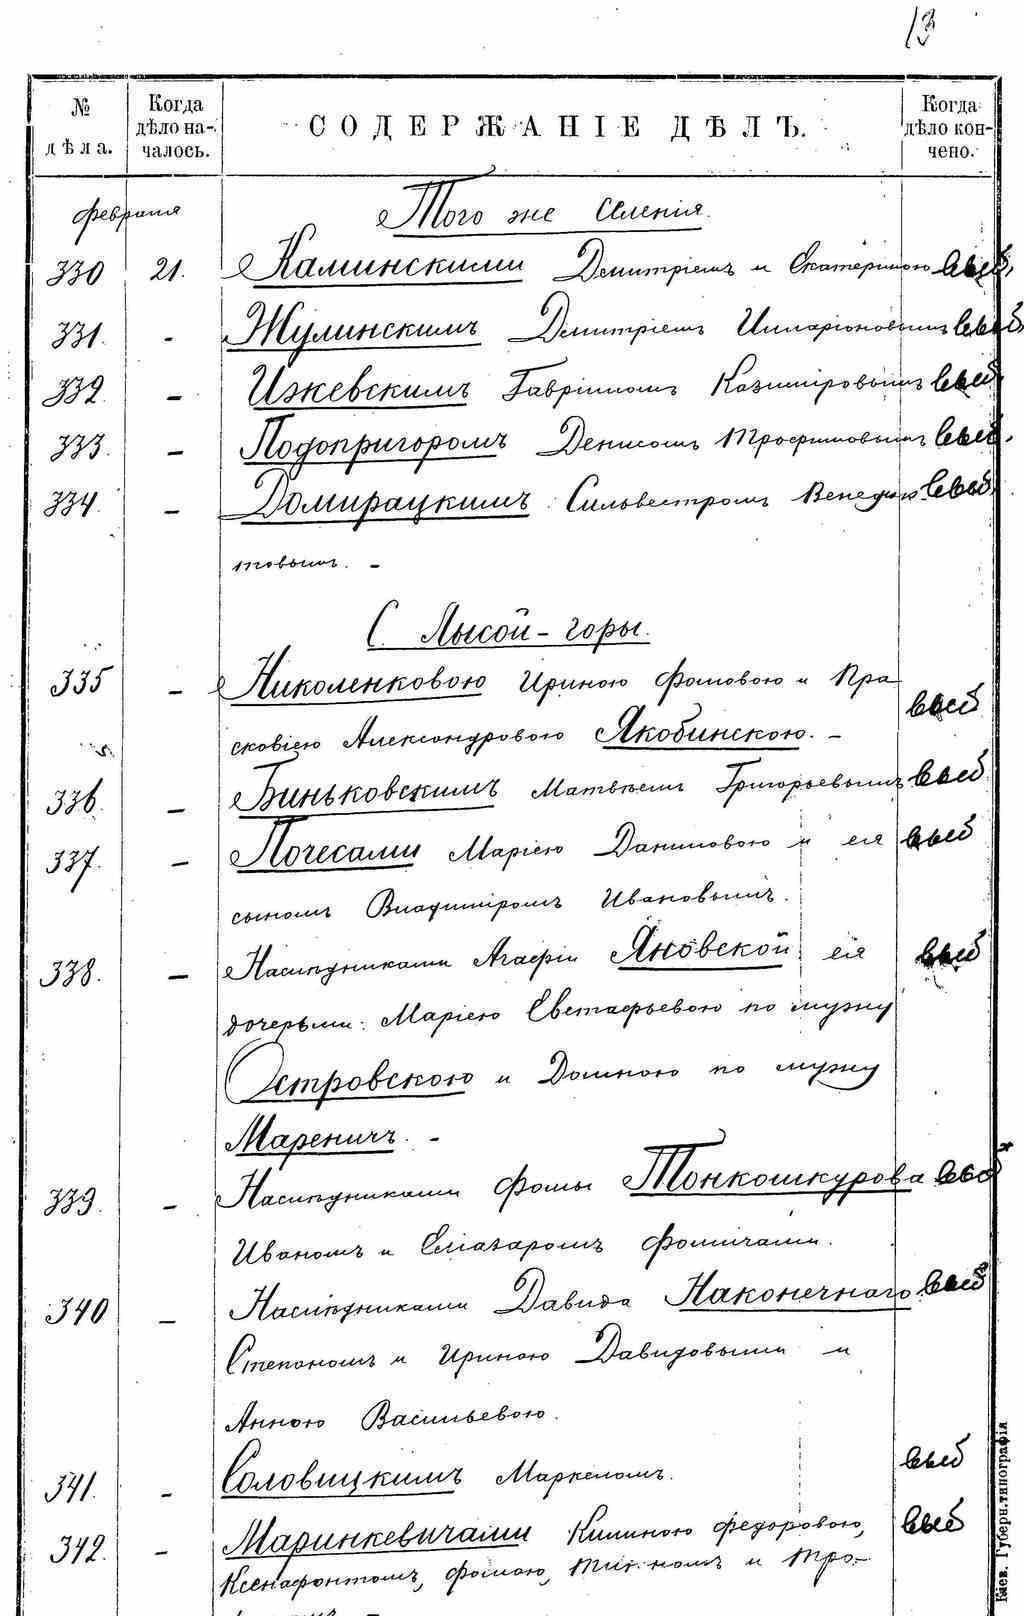 13
№ дѣла. Когда дѣло началось. СОДЕРЖАНІЕ ДѢЛЪ. Когда дѣло кончено.
февраля Того же селенія.
330 21. Каминскими Димитріемъ и Екатериною выб.
331. - Жулинскимъ Димитріемъ Илларіоновымъ выб.
332. - Ижевскимъ Гавріиломъ Казиміровымъ выб.
333. - Подопригоромъ Денисомъ Трофимовымъ выб.
334. - Домирацкимъ Сильвестромъ Венедик- выб.
товымъ. -
С. Лысой-горы.
335 - Николенковою Ириною Фомовою и Пра-
сковіею Александровою Якобинскою. - выб
336. - Биньковскимъ Матвѣемъ Григорьевымъ выб
337. - Почесами Маріею Даниловою и ея выб
сыномъ Владиміромъ Ивановымъ.
338. - Наслѣдниками Агафіи Яновской ея выб
дочерьми: Маріею Евстафьевою по мужу
Островскою и Домною по мужу
Мареничъ. -
339. - Наслѣдниками Фомы Тонкошкурова выб
Иваномъ и Елiазаромъ Фомичами.
340 - Наслѣдниками Давида Наконечнаго выб
Степаномъ и Ириною Давидовыми и
Анною Васильевою.
341. - Соловицкимъ Маркеломъ. выб
342. - Маринкевичами Килиною Федоровою, выб
Ксенафонтомъ, Фомою, и Тро-
Кіев. Губерн. типографія